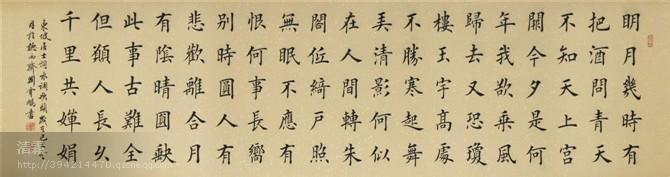 明月幾時有
把酒問青天
不知天上宮
闕今夕是何
年我欲乘風
歸去又恐瓊
樓玉宇高處
不勝寒起舞
弄清影何似
在人間轉朱
閣低綺戶照
無眠不應有
恨何事長嚮
別時圓人有
悲歡離合月
有陰晴圓缺
此事古難全
但願人長久
千里共嬋娟
東坡居士詞水調歌頭
月於聽雨齋劉會鵬書
http://394214470.qzone.qq.com